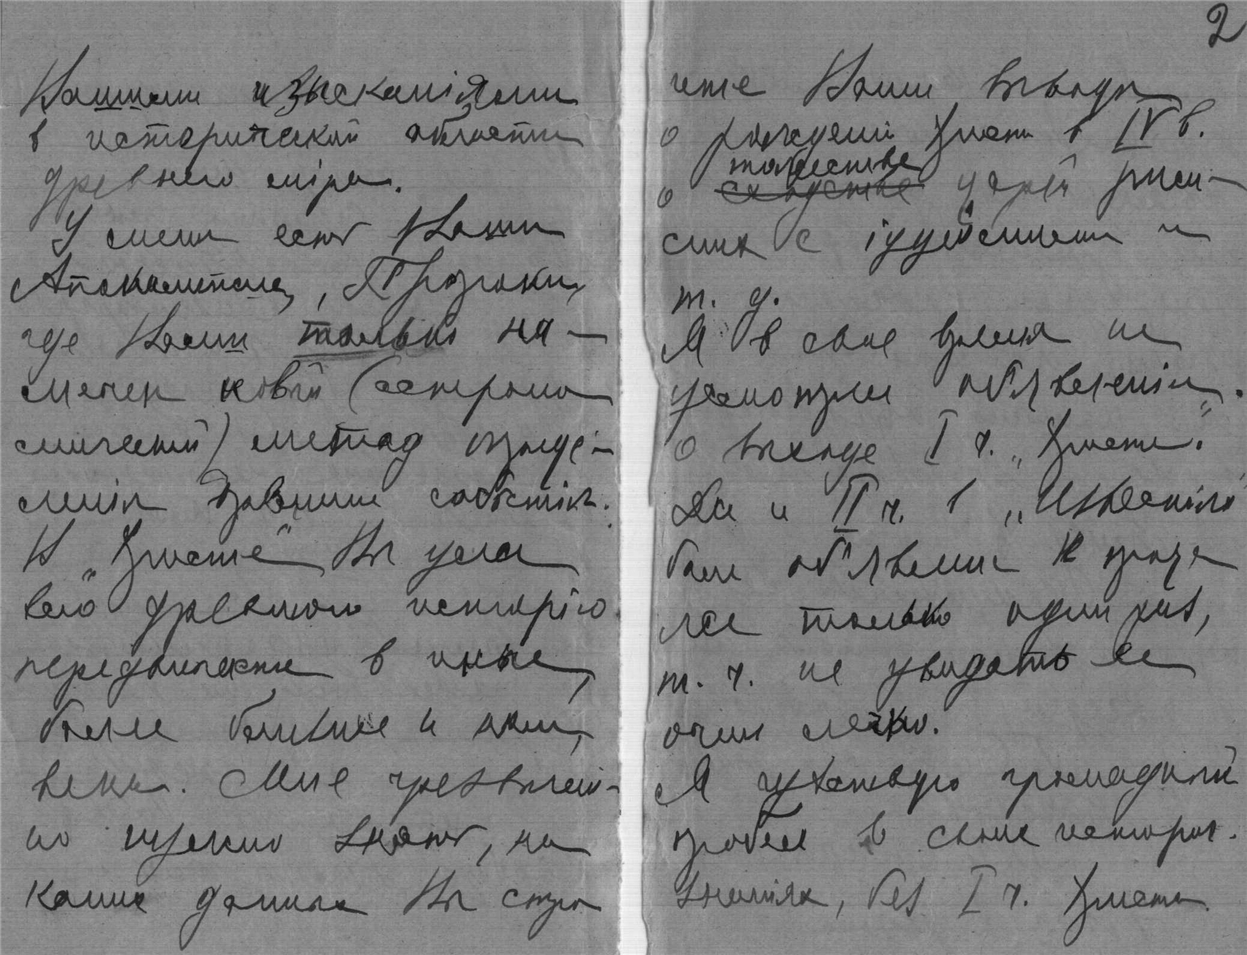 Вашими изысканіями
в исторической области
древнего міра.
У меня есть Ваши
Апокалипсис, Пророки,
где Вами только на-
мечен новый (астроно
мический) метод опреде-
ленія времени событія.
В „Христе“ Вы уже
всю древнюю исторію
передвигаете в иные,
более близкие к нам,
века. Мне чрезвычай-
но нужно знать, на
каких данных Вы стро
2
ите Ваши выводы
о рождении Христа в IV в.
тождестве
о сходстве царей рим-
ских с іудейскими и
т. д.
Я в свое время не
усмотрел объявленія
о выходе I ч. „Христа“.
Да и II ч. в „Известіях“
был объявлен к прода
же только один раз,
т. ч. не увидать ее
очень легко.
Я чувствую громадный
пробел в своих историч.
знаніях, без I ч. Христа